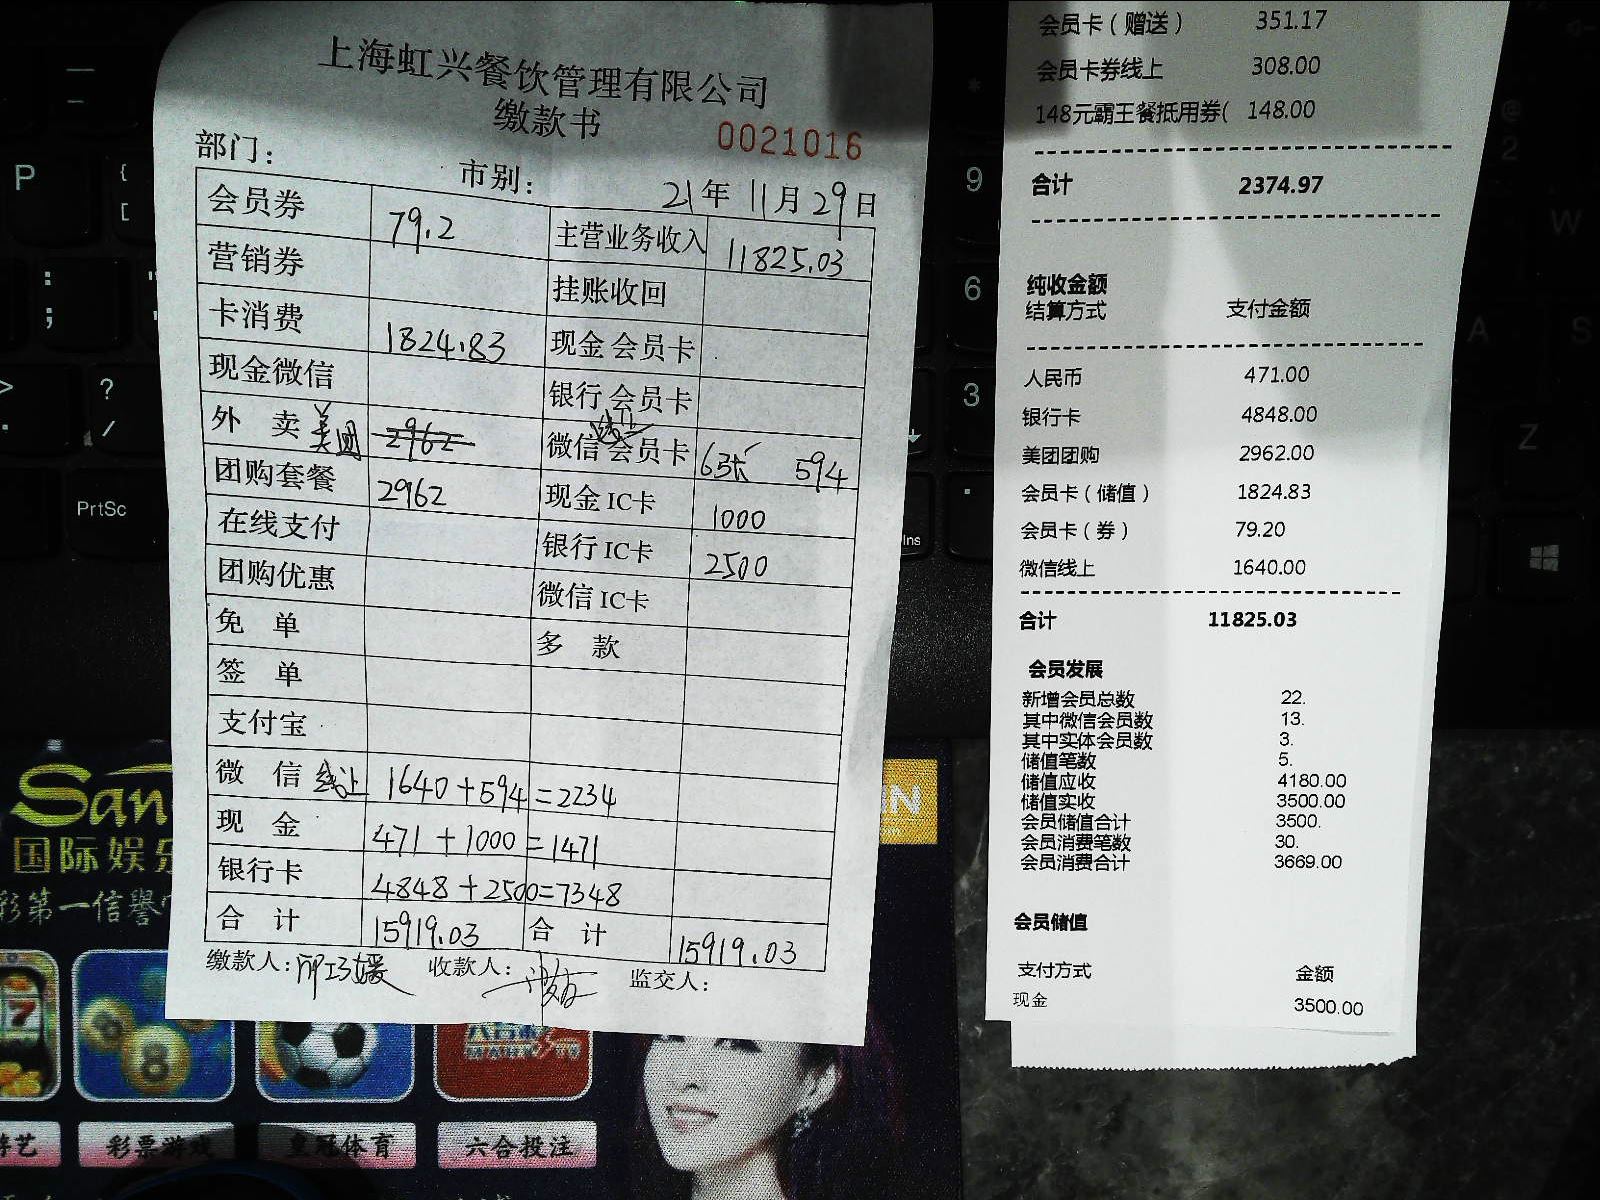 上海虹兴餐饮管理有限公司
缴款书
0021016
部门：
市别：
21年 11月 29日
会员券 79.2 主营业务收入 11825.03
营销券 挂账收回
卡消费 1824.83 现金 会员卡
现金微信 银行 会员卡
外 卖 美团 2962 微信 线上 会员卡 63张 594
团购套餐 2962 现金 IC卡 1000
在线支付 银行 IC卡 2500
团购优惠 微信 IC卡
免 单 多 款
签 单
支付宝
微 信 线上 1640+594=2234
现 金 471+1000=1471
银行卡 4848+2500=7348
合 计 15919.03 合 计 15919.03
缴款人： 收款人： 监交人：
会员卡（赠送） 351.17
会员卡券线上 308.00
148元霸王餐抵用券( 148.00
合计 2374.97
纯收金额
结算方式 支付金额
人民币 471.00
银行卡 4848.00
美团团购 2962.00
会员卡（储值） 1824.83
会员卡（券） 79.20
微信线上 1640.00
合计 11825.03
会员发展
新增会员总数 22.
其中微信会员数 13.
其中实体会员数 3.
储值笔数 5.
储值应收 4180.00
储值实收 3500.00
会员储值合计 3500.
会员消费笔数 30.
会员消费合计 3669.00
会员储值
支付方式 金额
现金 3500.00
P
{
[
:
;
>
?
/
PrtSc
9
6
3
.
Ins
@
2
W
A
S
Z
San
国际娱乐
彩第一信誉
IN
7
8
彩票游戏
皇冠体育
六合投注